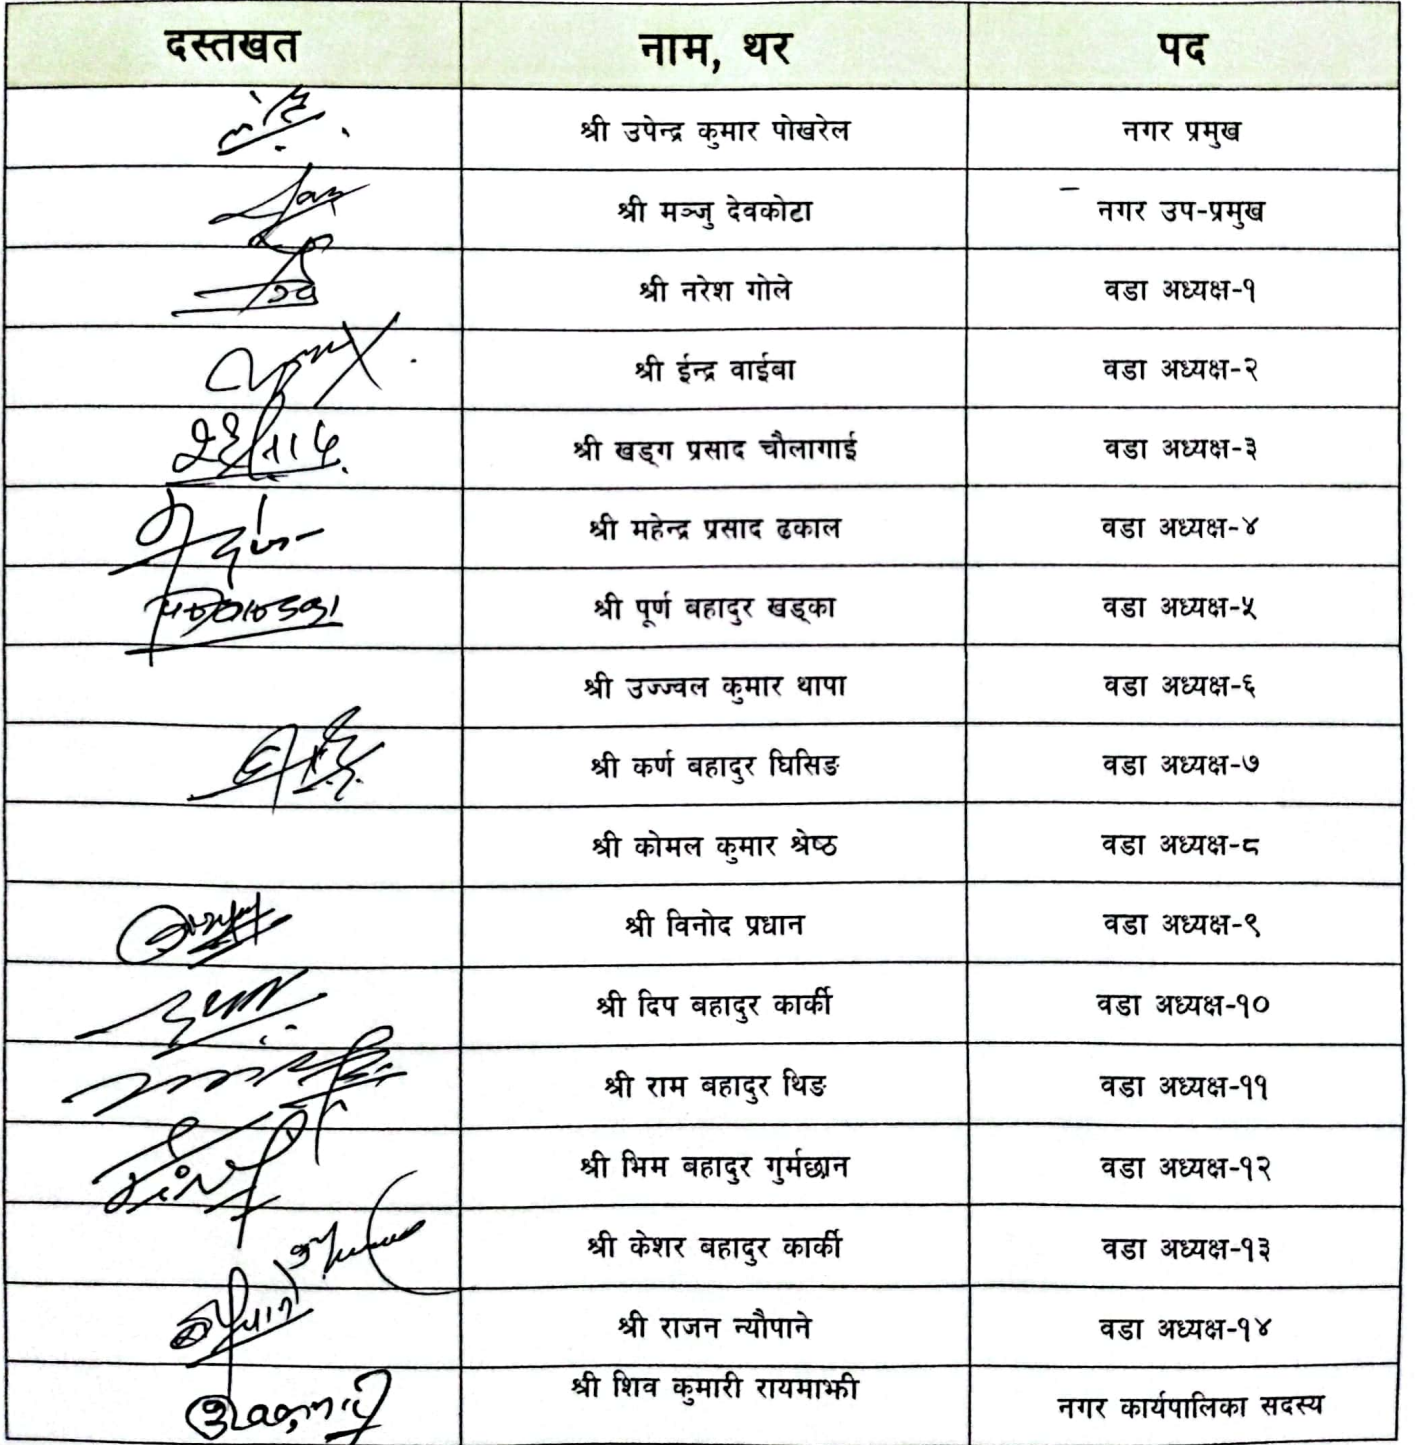 दस्तखत नाम, थर पद
श्री उपेन्द्र कुमार पोखरेल नगर प्रमुख
श्री मञ्जु देवकोटा नगर उप-प्रमुख
श्री नरेश गोले वडा अध्यक्ष-१
श्री ईन्द्र वाईबा वडा अध्यक्ष-२
श्री खड्ग प्रसाद चौलागाई वडा अध्यक्ष-३
श्री महेन्द्र प्रसाद ढकाल वडा अध्यक्ष-४
श्री पूर्ण बहादुर खड्का वडा अध्यक्ष-५
श्री उज्ज्वल कुमार थापा वडा अध्यक्ष-६
श्री कर्ण बहादुर घिसिङ वडा अध्यक्ष-७
श्री कोमल कुमार श्रेष्ठ वडा अध्यक्ष-८
श्री विनोद प्रधान वडा अध्यक्ष-९
श्री दिप बहादुर कार्की वडा अध्यक्ष-१०
श्री राम बहादुर थिङ वडा अध्यक्ष-११
श्री भिम बहादुर गुर्मछान वडा अध्यक्ष-१२
श्री केशर बहादुर कार्की वडा अध्यक्ष-१३
श्री राजन न्यौपाने वडा अध्यक्ष-१४
श्री शिव कुमारी रायमाझी नगर कार्यपालिका सदस्य